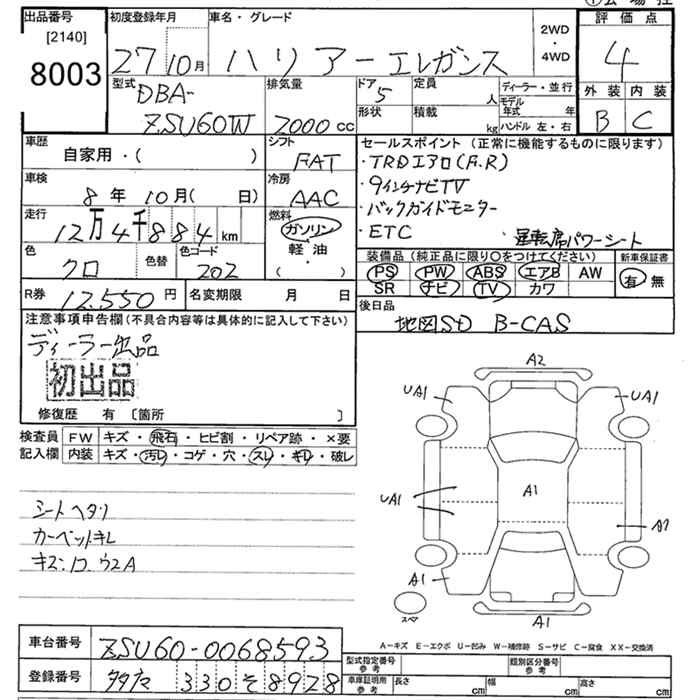 出品番号 [2140] 8003
初度登録年月 27 10月
車名・グレード ハリアーエレガンス
2WD・4WD
評価点 4
外装 B 内装 C
型式 DBA-ZSU60W
排気量 2000cc
ドア 5 形状
定員 人 積載 kg
ディーラー・並行
モデル年式 年
ハンドル 左・右
車歴 自家用・( )
シフト FAT
車検 8年10月( 日)
冷房 AAC
走行 12万4千884km
燃料 ガソリン 軽油 (・)
色 クロ 色替 色コード 202
R券 12,550円 名変期限 月 日
セールスポイント(正常に機能するものに限ります)
・TRDエアロ(F.R)
・9インチナビTV
・バックガイドモニター
・ETC ・運転席パワーシート
装備品(純正品に限り○をつけてください) 新車保証書
PS PW ABS エアB AW 有・無
SR ナビ TV カワ
後日品
地図SD B-CAS
注意事項申告欄(不具合内容等は具体的に記入して下さい)
ディーラー出品
初出品
修復歴 有〔箇所 〕
検査員 FW キズ・飛石・ヒビ割・リペア跡・×要
記入欄 内装 キズ・汚レ・コゲ・穴・スレ・キレ・破レ
シートヘタリ
カーペットキレ
A2
UA1 UA1
UA1 A1 A2
A1
スペア A1
A-キズ E-エクボ U-凹み W-補修跡 S-サビ C-腐食 XX-交換済
車台番号 ZSU60-0068593
型式指定番号 参考 類別区分番号 参考
登録番号 330そ8928
車庫証明用 参考 長さ cm 幅 cm 高さ cm